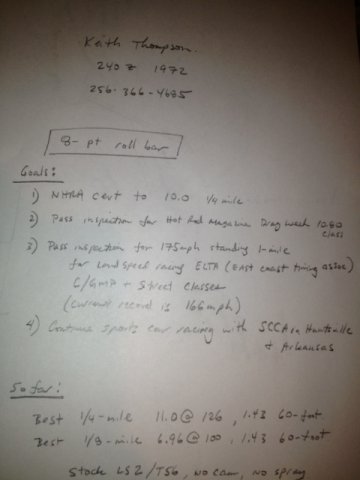 Keith Thompson.
240 Z 1972
256-366-4685
8-pt roll bar
Goals:
1) NHRA cert to 10.0 1/4 mile
2) Pass inspection for Hot Rod Magazine Drag Week 10.80 class
3) Pass inspection for 175mph standing 1-mile
for land speed racing ELTA (East coast timing assoc)
C/GMP + Street classes
(current record is 166mph)
4) Continue sports car racing with SCCA in Huntsville
+ Arkansas
So far:
Best 1/4-mile 11.0 @ 126, 1.43 60-foot
Best 1/8-mile 6.96 @ 100, 1.43 60-foot
Stock LS2/T56, no cam, no spray